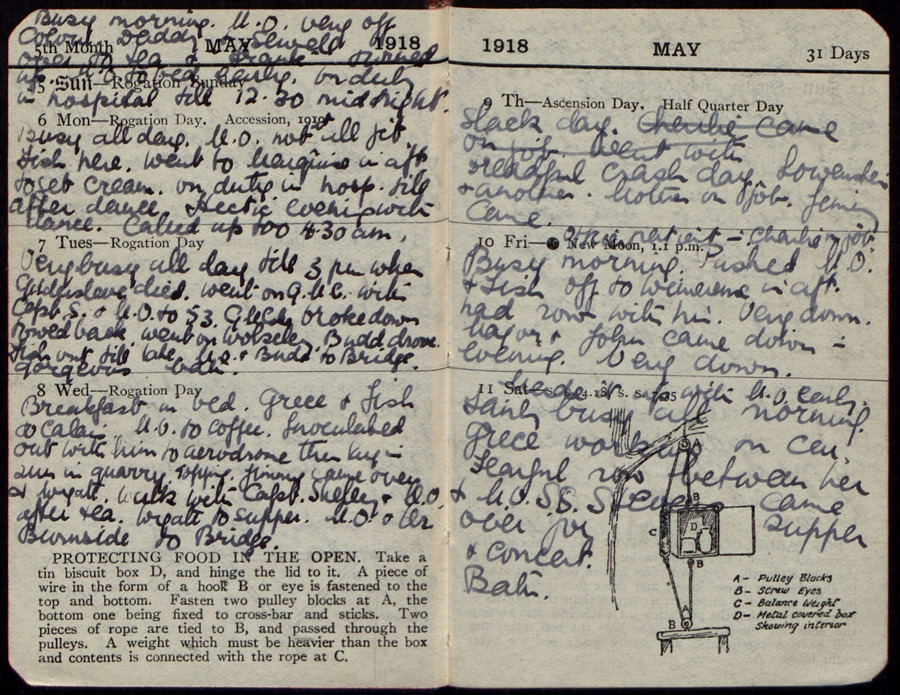 Busy morning. M.O. very off
Colour. Daddy & Sewell
5th Month MAY 1918
over to tea &
up. M.O. to bed early. On duty
5 Sun—Rogation Sunday
in hospital till 12.30 midnight.
6 Mon—Rogation Day. Accession, 1910
Busy all day. M.O. not all fit.
Fish here. Went to in aft
to get cream. On duty in hosp. till
after dance. Hectic evening with
dance. Called up too 4.30 am.
7 Tues—Rogation Day
Very busy all day till 3 pm when
died. Went on G.M.C. with
Capt. S. & M.O. to 53. G.M.C. broke down
Towed back. Went on Wolseley. Budd drove.
Fish out till late. M.O. & Budd to Bridge.
Gorgeous bath.
8 Wed—Rogation Day
Breakfast in bed. Grece & Fish
to Calais. M.O. to coffee. Inoculated
out with him to aerodrome then lay in
sun in quarry. Topping. Jimmy came over
& Wyatt. Walk with Capt. Shelley & M.O.
after tea. Wyatt to supper. M.O. & Car
Burnside to Bridge.
PROTECTING FOOD IN THE OPEN. Take a
tin biscuit box D, and hinge the lid to it. A piece of
wire in the form of a hook B or eye is fastened to the
top and bottom. Fasten two pulley blocks at A, the
bottom one being fixed to cross-bar and sticks. Two
pieces of rope are tied to B, and passed through the
pulleys. A weight which must be heavier than the box
and contents is connected with the rope at C.
1918 MAY 31 Days
9 Th—Ascension Day. Half Quarter Day
Slack day. Charlie came
on job. Went with
dreadful crash day. Lowenstein
& another. on job. Jimmy
came.
patient — Charlie on job.
10 Fri—● New Moon, 1.1 p.m.
Busy morning. Pushed M.O.
& Fish off to Wimereux in aft.
had row with him. Very down.
Major & John came down in
evening. Very down.
to with M.O. early.
11 Sat—
Fairly busy all morning
Grece working on Cen.
Fearful row between her
& M.O. S.S. Stevens came
over for supper
& concert.
Bath.
A
B
C
D
B
B
A — Pulley Blocks
B — Screw Eyes
C — Balance Weight
D — Metal covered box
Showing interior